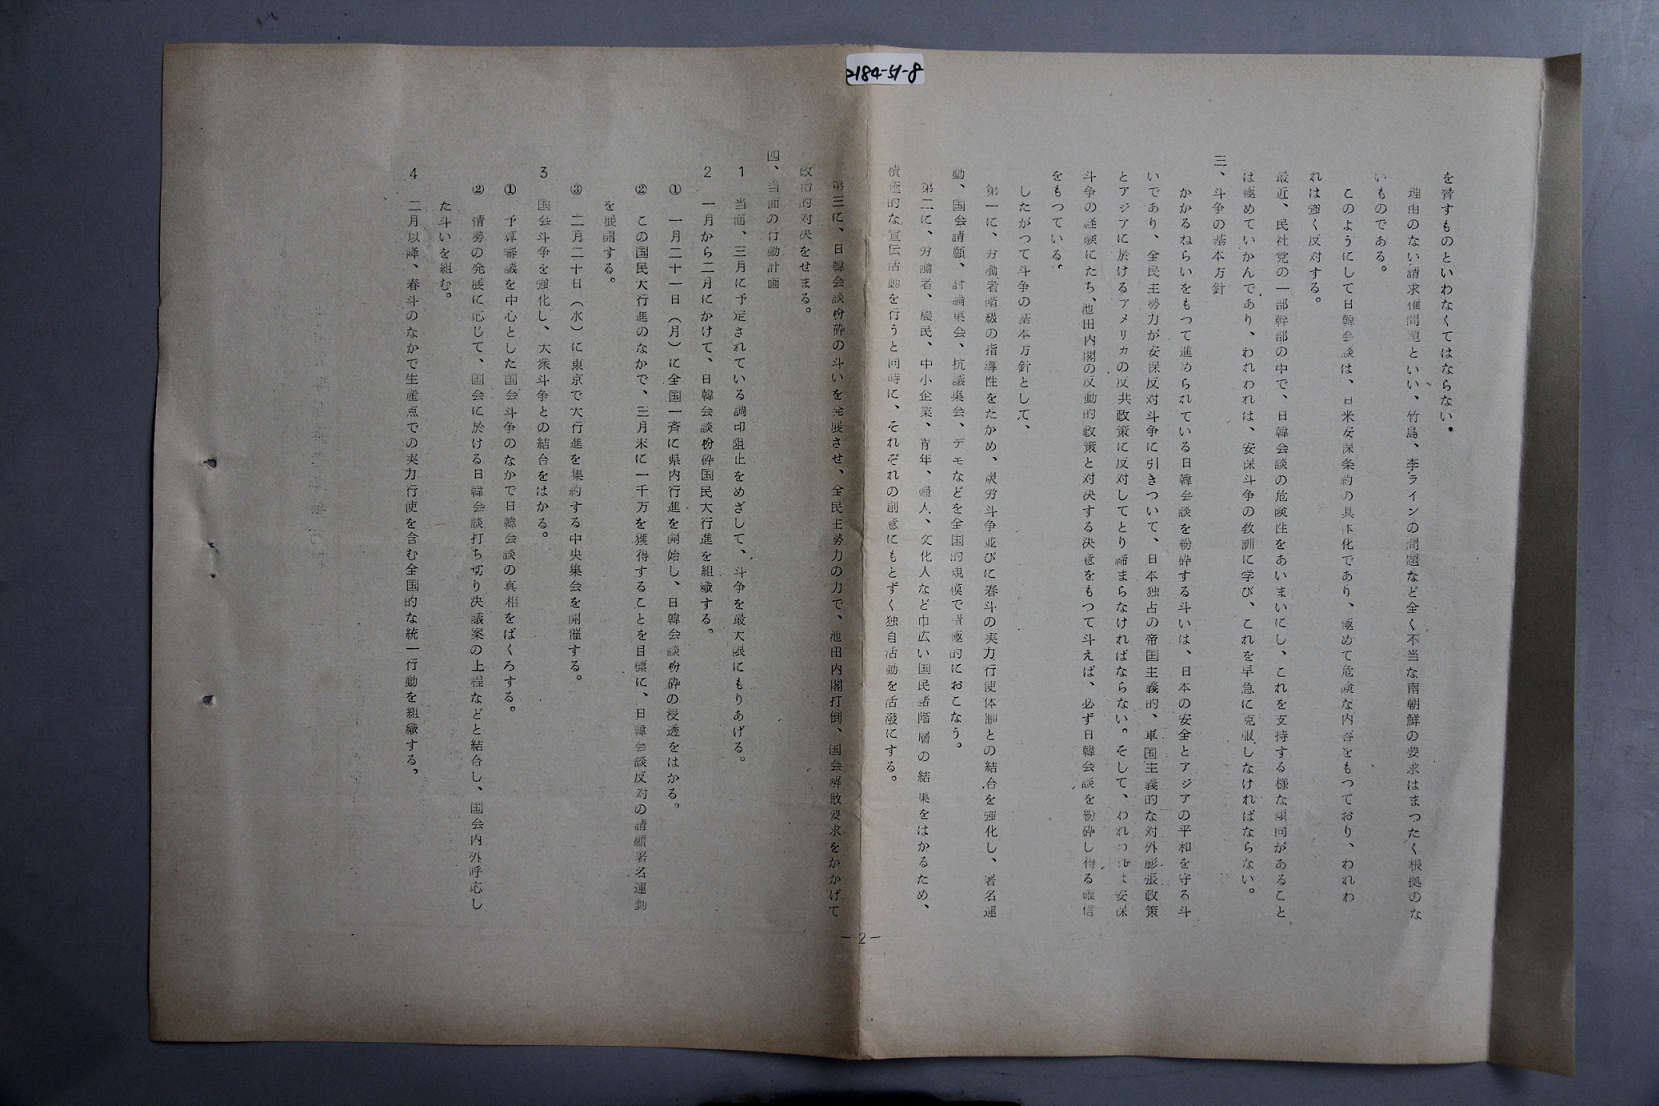 2184-51-8
を脅すものといわなくてはならない。
理由のない請求権問題といい、竹島、李ラインの問題など全く不当な南朝鮮の要求はまつたく根拠のな
いものである。
このようにして日韓会談は、日米安保条約の具体化であり、極めて危険な内容をもつており、われわ
れは強く反対する。
最近、民社党の一部幹部の中で、日韓会談の危険性をあいまいにし、これを支持する様な傾向があること
は極めていかんであり、われわれは、安保斗争の教訓に学び、これを早急に克服しなければならない。
三、斗争の基本方針
かかるねらいをもつて進められている日韓会談を粉砕する斗いは、日本の安全とアジアの平和を守る斗
いであり、全民主勢力が安保反対斗争に引きついて、日本独占の帝国主義的、軍国主義的な対外膨張政策
とアジアに於けるアメリカの反共政策に反対してとり締まらなければならない。そして、われわれは安保
斗争の経験にたち、池田内閣の反動的政策と対決する決意をもつて斗えば、必ず日韓会談を粉砕し得る確信
をもつている。
したがつて斗争の基本方針として、
第一に、労働者階級の指導性をたかめ、炭労斗争並びに春斗の実力行使体制との結合を強化し、署名運
動、国会請願、討論集会、抗議集会、デモなどを全国的規模で積極的におこなう。
第二に、労働者、農民、中小企業、青年、婦人、文化人など巾広い国民諸階層の結集をはかるため、
積極的な宣伝活動を行うと同時に、それぞれの創意にもとずく独自活動を活潑にする。
第三に、日韓会談粉砕の斗いを発展させ、全民主勢力の力で、池田内閣打倒、国会解散要求をかかげて
政治的対決をせまる。
四、当面の行動計画
1 当面、三月に予定されている調印阻止をめざして、斗争を最大限にもりあげる。
2 一月から二月にかけて、日韓会談粉砕国民大行進を組織する。
① 一月二十一日（月）に全国一斉に県内行進を開始し、日韓会談粉砕の浸透をはかる。
② この国民大行進のなかで、三月末に一千万を獲得することを目標に、日韓会談反対の請願署名運動
を展開する。
③ 二月二十日（水）に東京で大行進を集約する中央集会を開催する。
3 国会斗争を強化し、大衆斗争との結合をはかる。
① 予算審議を中心とした国会斗争のなかで日韓会談の真相をばくろする。
② 情勢の発展に応じて、国会に於ける日韓会談打ち切り決議案の上程などと結合し、国会内外呼応し
た斗いを組む。
4 二月以降、春斗のなかで生産点での実力行使を含む全国的な統一行動を組織する。
－2－